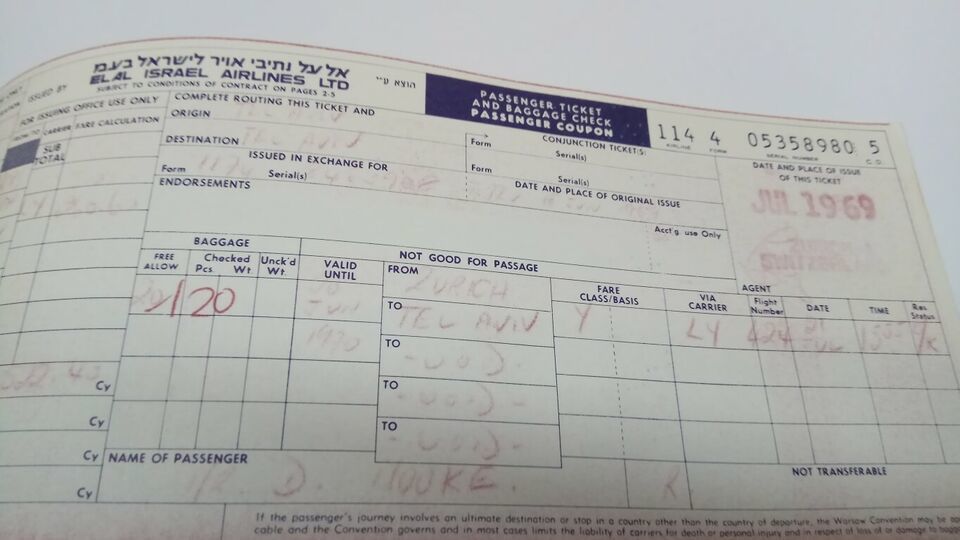 אל על נתיבי אויר לישראל בע.מ
הוצא ע״י
EL AL ISRAEL AIRLINES LTD
SUBJECT TO CONDITIONS OF CONTRACT ON PAGES 2-5
PASSENGER TICKET
AND BAGGAGE CHECK
PASSENGER COUPON
114 4 05358980 5
AIRLINE FORM SERIAL NUMBER C.D.
ISSUED BY
FOR ISSUING OFFICE USE ONLY
CARRIER FARE CALCULATION
SUB
TOTAL
COMPLETE ROUTING THIS TICKET AND
CONJUNCTION TICKET(S)
ORIGIN
Form Serial(s)
DESTINATION TEL AVIV
DATE AND PLACE OF ISSUE
OF THIS TICKET
JUL 1969
ZURICH
ISSUED IN EXCHANGE FOR
Form Serial(s)
Form Serial(s)
DATE AND PLACE OF ORIGINAL ISSUE
ENDORSEMENTS
Acct'g use Only
AGENT
BAGGAGE
FREE
ALLOW
Checked
Pcs Wt
Unck'd
Wt.
VALID
UNTIL
NOT GOOD FOR PASSAGE
FARE
CLASS/BASIS
VIA
CARRIER
Flight
Number
DATE
TIME
Res
Status
FROM ZURICH
20 1 20
JUN
1970
TO TEL AVIV Y LY 424 JUL
TO - VOID -
TO - VOID -
TO - VOID -
Cy
Cy
Cy
Cy
NAME OF PASSENGER
NOT TRANSFERABLE
D.
If the passenger's journey involves an ultimate destination or stop in a country other than the country of departure, the Warsaw Convention may be
cable and the Convention governs and in most cases limits the liability of carriers for death or personal injury and in respect of loss of or damage to